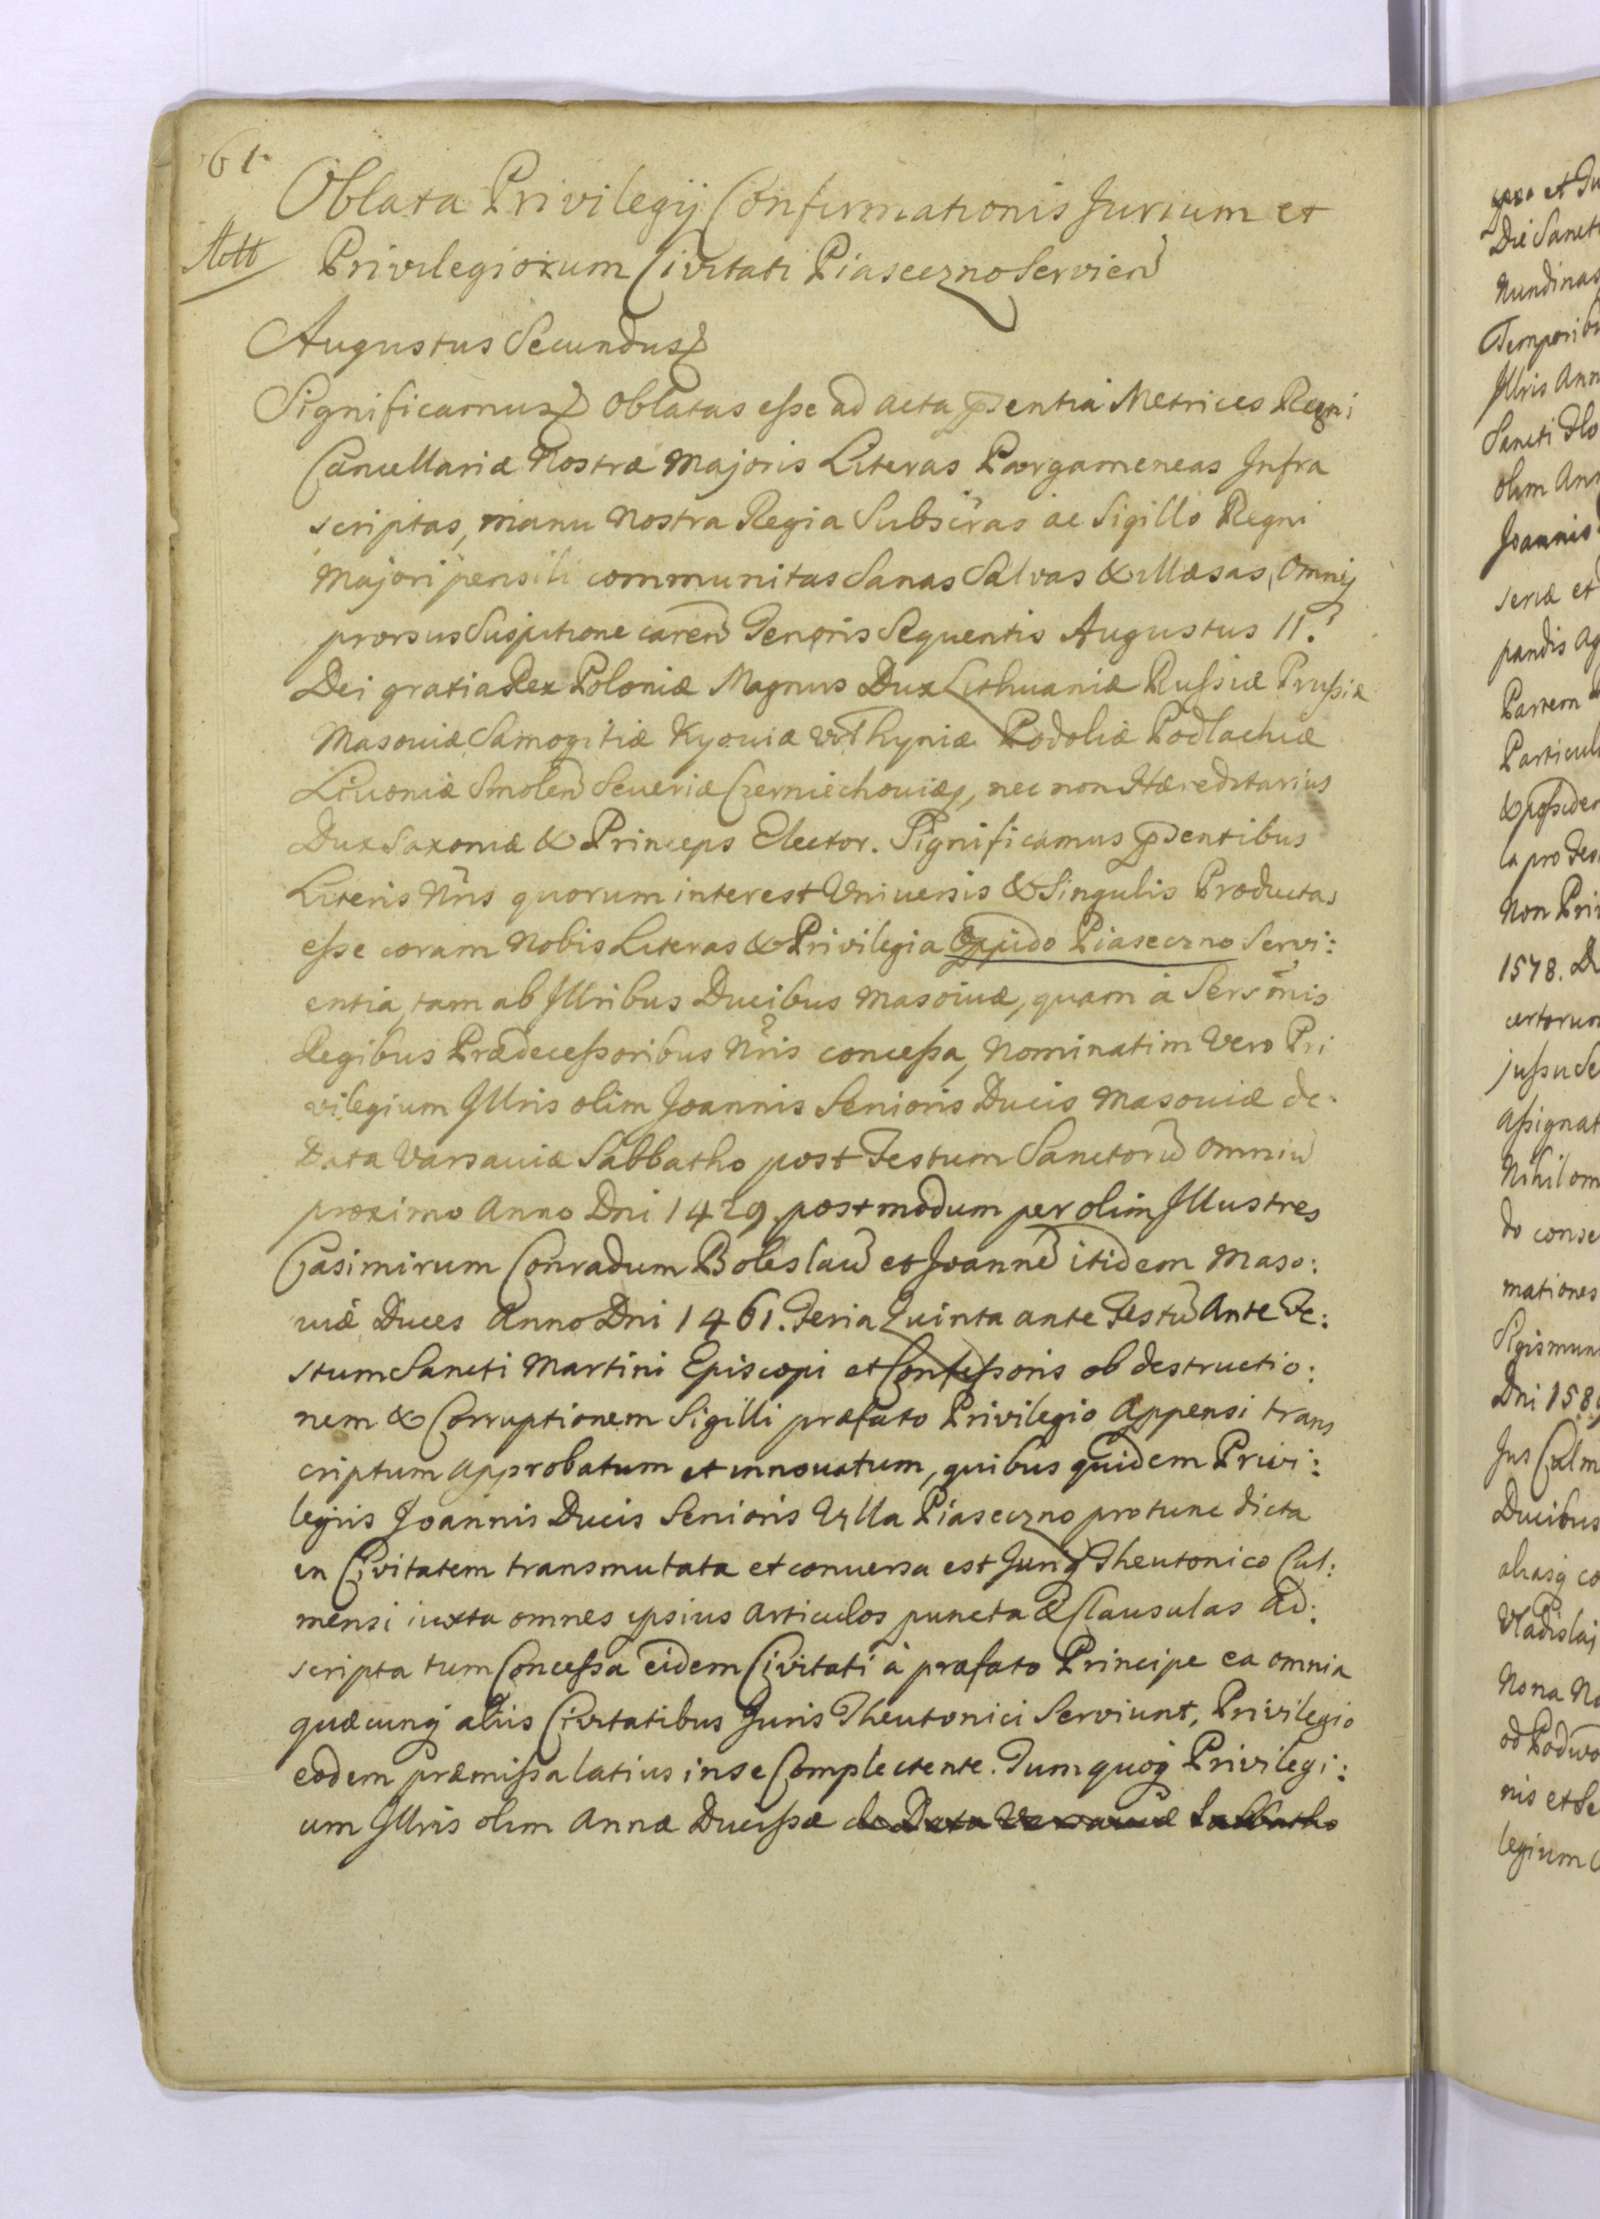 61
Oblata Privilegij Confirmationis Jurium et
Privilegiorum Civitati Piaseczno Servien
Augustus Secundus
Significamus Oblatas esse ad acta pntia Metrices Regni
Cancellariæ Nostræ Majoris Literas Pargameneas Infra
scriptas, manu Nostra Regia Subscras ac Sigillo Regni
Majori pensili communitas Sanas Salvas & illæsas, Omniq
prorsus Suspitione caren Tenoris Sequentis Augustus II.
Dei gratia Rex Poloniæ Magnus Dux Lithuaniæ Russiæ Prussiæ
Masoviæ Samogitiæ Kyoviæ Vothyniæ Podoliæ Podlachiæ
Livoniæ Smolen Severiæ Czerniechoviæq, nec non Hæreditarius
Dux Saxoniæ & Princeps Elector. Significamus pntibus
Literis Nris quorum interest Universis & Singulis Productas
esse coram Nobis Literas & Privilegia Oppido Piaseczno Servi:
entia, tam ab Illribus Ducibus Masoviæ, quam à Sersmis
Regibus Prædecessoribus Nris concessa, Nominatim Vero Pri
vilegium Illris olim Joannis Senioris Ducis Masoviæ de
Data Varsaviæ Sabbatho post Festum Sanctorū Omniū
proximo Anno Dni 1429 postmodum per olim Illustres
Casimirum Conradum Boleslaū et Joannē itidem Maso:
viæ Duces Anno Dni 1461. Feria Quinta ante Festū Ante Fe:
stum Sancti Martini Episcopi et Confessoris ob destructio:
nem & Corruptionem Sigilli præfato Privilegio Appensi trans
criptum Approbatum et innovatum, quibus quidem Privi:
legiis Joannis Ducis Senioris Villa Piaseczno protunc dicta
in Civitatem transmutata et conversa est Juriq Theutonico Cul:
mensi iuxta omnes ipsius Articulos puncta & Clausulas Ad:
scripta tum Concessa eidem Civitati à præfato Principe ea omnia
quæcunq aliis Civitatibus Juris Theutonici Serviunt, Privilegio
eodem præmissa latius in se Complectente. Tum quoq Privilegi:
um Illris olim Annæ Ducissæ de Data Varsaviæ Sabbatho
Die Sancti
Nundinas
Temporibu
Illris Ann
Sancti Flo
olim Ann
Joannis
seriæ et
pandis Ag
Partem
Particul
& possiden
la pro Fes
Non Pri
1578. D
certorum
jussu Se
Assignat
Nihil om
do conse
mationes
Sigismun
Dni 1589
Jus Culm
Ducibus
aliasq co
Vladislai
Nona No
od Podwo
nis et Se
legium C